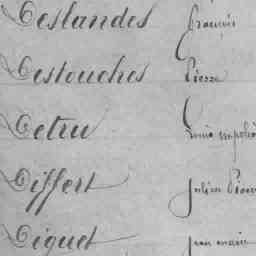 Deslandes François
Destouches Pierre
Detru Louis napoléo
Differt julien Pierr
Diguet jean marie